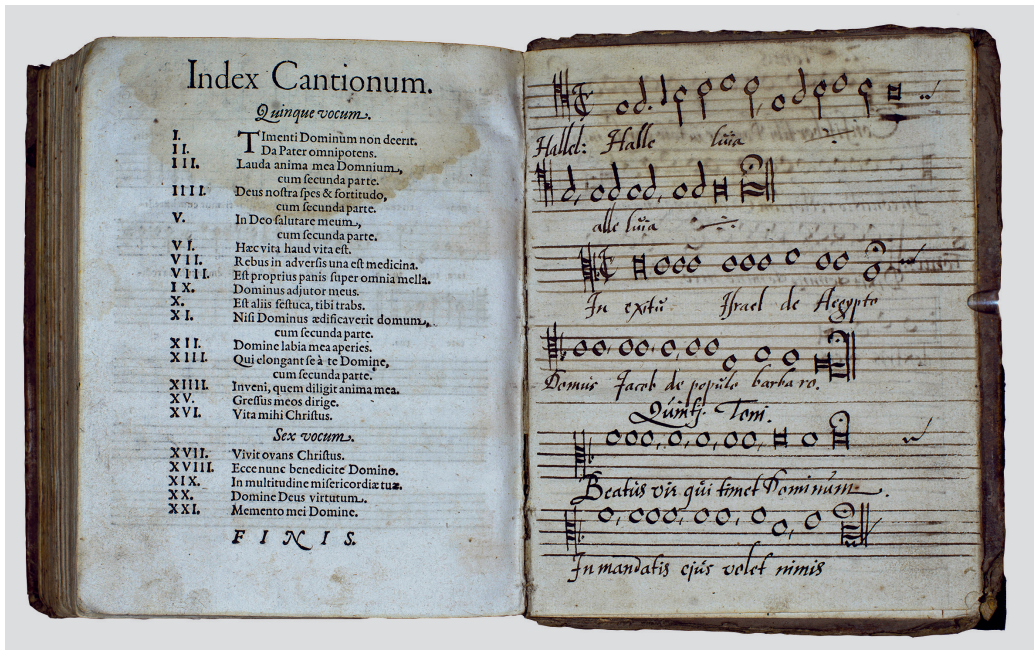 Index Cantionum.
Quinque vocum.
I. TImenti Dominum non deerit.
II. Da Pater omnipotens.
III. Lauda anima mea Domnium,
cum ſecunda parte.
IIII. Deus noſtra ſpes & fortitudo,
cum ſecunda parte.
V. In Deo ſalutare meum,
cum ſecunda parte.
VI. Hæc vita haud vita eſt.
VII. Rebus in adverſis una eſt medicina.
VIII. Eſt proprius panis ſuper omnia mella.
IX. Dominus adjutor meus.
X. Eſt aliis feſtuca, tibi trabs.
XI. Niſi Dominus ædificaverit domum,
cum ſecunda parte.
XII. Domine labia mea aperies.
XIII. Qui elongant ſe à te Domine,
cum ſecunda parte.
XIIII. Inveni, quem diligit anima mea.
XV. Greſſus meos dirige.
XVI. Vita mihi Chriſtus.
Sex vocum.
XVII. Vivit ovans Chriſtus.
XVIII. Ecce nunc benedicite Domino.
XIX. In multitudine miſericordiæ tuæ.
XX. Domine Deus virtutum.
XXI. Memento mei Domine.
FINIS.
Hallel: Halle luia
alle luia
In exitu Iſrael de Aegypto
Domus Jacob de populo barbaro.
Quintj. Toni.
Beatus vir qui timet Dominum.
In mandatis ejus volet nimis